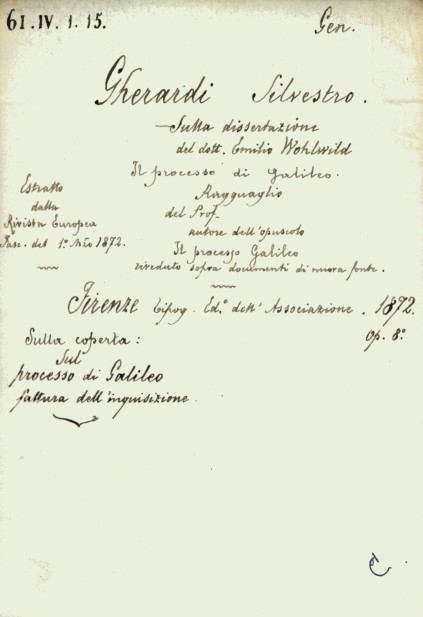 61.IV.1.15.
Gen.
Gherardi Silvestro.
— Sulla dissertazione
del dott. Emilio Wohlwild
Il processo di Galileo.
Ragguaglio
del Prof.
autore dell'opuscolo
Il processo Galileo
riveduto sopra documenti di nuova fonte.
Estratto
dalla
Rivista Europea
Fasc. del 1.º 1872.
Firenze Tipog. Ed.ª dell'Associazione. 1872.
Op. 8.º
Sulla coperta:
Sul
processo di Galileo
fattura dell'inquisizione.